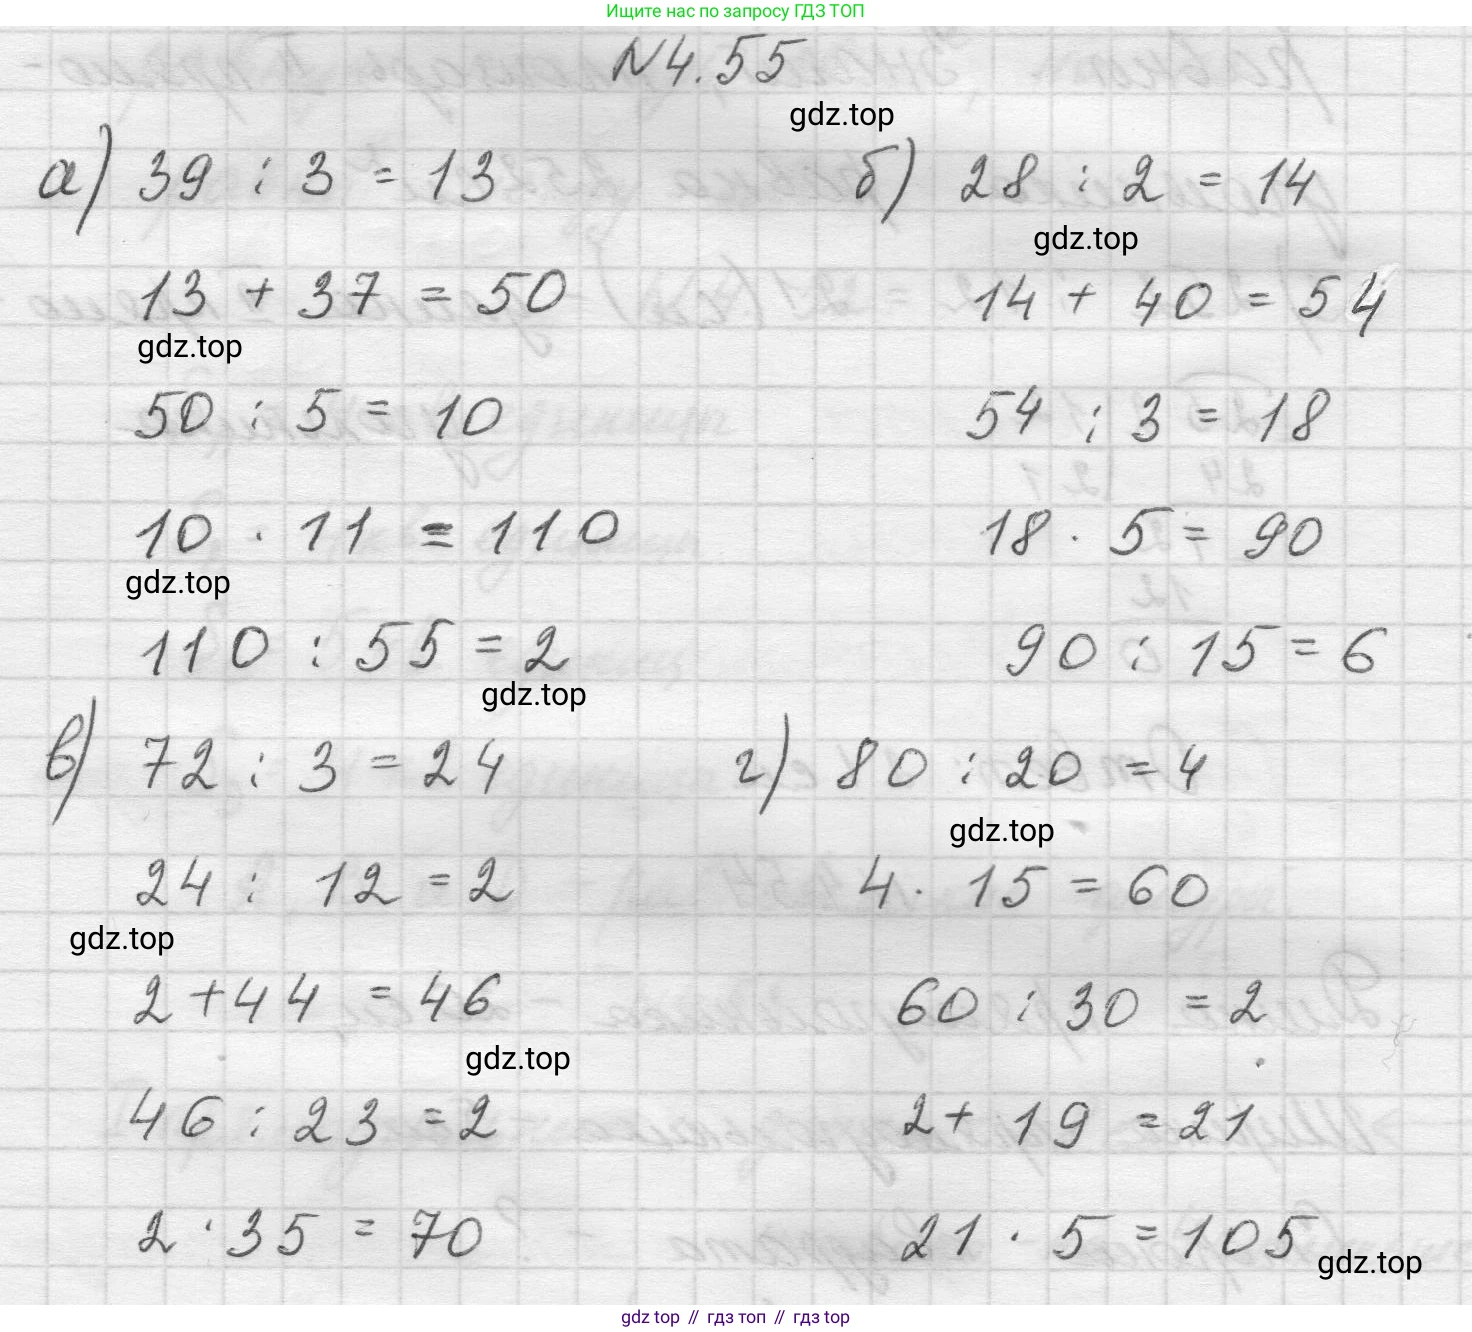 Ищите нас по запросу ГДЗ ТОП
№4.55
gdz.top
а) 39 : 3 = 13
13 + 37 = 50
gdz.top
50 : 5 = 10
10 · 11 = 110
gdz.top
110 : 55 = 2
gdz.top
б) 28 : 2 = 14
gdz.top
14 + 40 = 54
54 : 3 = 18
18 · 5 = 90
90 : 15 = 6
в) 72 : 3 = 24
24 : 12 = 2
gdz.top
2 + 44 = 46
gdz.top
46 : 23 = 2
2 · 35 = 70
г) 80 : 20 = 4
gdz.top
4 · 15 = 60
60 : 30 = 2
2 + 19 = 21
21 · 5 = 105
gdz.top
gdz top // гдз топ // gdz top